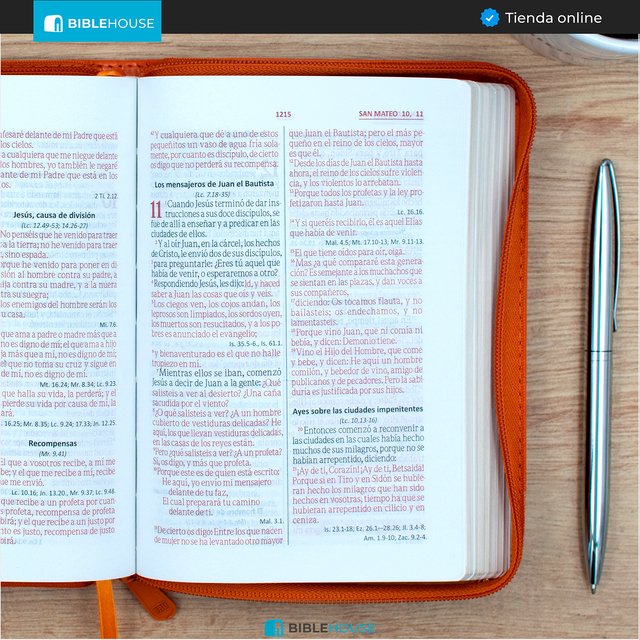 BIBLEHOUSE
Tienda online
1215
SAN MATEO 10, 11
fesaré delante de mi Padre que está
los cielos.
a cualquiera que me niegue delante
los hombres, yo también le negaré
ante de mi Padre que está en los
os.
2 Ti. 2.12.
Jesús, causa de división
(Lc. 12.49-53; 14.26-27)
No penséis que he venido para traer
a la tierra; no he venido para traer
, sino espada.
orque he venido para poner en di
sión al hombre contra su padre, a
ija contra su madre, y a la nuera
tra su suegra;
los enemigos del hombre serán los
u casa.
Mi. 7.6.
que ama a padre o madre más que a
no es digno de mí; el que ama a hijo
ja más que a mí, no es digno de mí;
el que no toma su cruz y sigue en
de mí, no es digno de mí.
Mt. 16.24; Mr. 8.34; Lc. 9.23.
que halla su vida, la perderá; y el
pierde su vida por causa de mí, la
ará.
16.25; Mr. 8.35; Lc. 9.24; 17.33; Jn. 12.25.
Recompensas
(Mr. 9.41)
l que a vosotros recibe, a mí me
be; y el que me recibe a mí, recibe
me envió.
Lc. 10.16; Jn. 13.20., Mr. 9.37; Lc. 9.48.
que recibe a un profeta por cuan
profeta, recompensa de profeta
birá; y el que recibe a un justo por
nto es justo, recompensa de justo
birá.
42 Y cualquiera que dé a uno de estos
pequeñitos un vaso de agua fría sola
mente, por cuanto es discípulo, de cierto
os digo que no perderá su recompensa.
Los mensajeros de Juan el Bautista
(Lc. 7.18-35)
11 1 Cuando Jesús terminó de dar ins
trucciones a sus doce discípulos, se
fue de allí a enseñar y a predicar en las
ciudades de ellos.
2 Y al oír Juan, en la cárcel, los hechos
de Cristo, le envió dos de sus discípulos,
3 para preguntarle: ¿Eres tú aquel que
había de venir, o esperaremos a otro?
4 Respondiendo Jesús, les dijo: Id, y haced
saber a Juan las cosas que oís y veis.
5 Los ciegos ven, los cojos andan, los
leprosos son limpiados, los sordos oyen,
los muertos son resucitados, y a los po
bres es anunciado el evangelio;
Is. 35.5-6., Is. 61.1.
6 y bienaventurado es el que no halle
tropiezo en mí.
7 Mientras ellos se iban, comenzó
Jesús a decir de Juan a la gente: ¿Qué
salisteis a ver al desierto? ¿Una caña
sacudida por el viento?
8 ¿O qué salisteis a ver? ¿A un hombre
cubierto de vestiduras delicadas? He
aquí, los que llevan vestiduras delicadas,
en las casas de los reyes están.
9 Pero ¿qué salisteis a ver? ¿A un profeta?
Sí, os digo, y más que profeta.
10 Porque éste es de quien está escrito:
He aquí, yo envío mi mensajero
delante de tu faz,
El cual preparará tu camino
delante de ti.
Mal. 3.1.
11 De cierto os digo: Entre los que nacen
de mujer no se ha levantado otro mayor
que Juan el Bautista; pero el más pe
queño en el reino de los cielos, mayor
es que él.
12 Desde los días de Juan el Bautista hasta
ahora, el reino de los cielos sufre violen
cia, y los violentos lo arrebatan.
13 Porque todos los profetas y la ley pro
fetizaron hasta Juan.
Lc. 16.16.
14 Y si queréis recibirlo, él es aquel Elías
que había de venir.
Mal. 4.5; Mt. 17.10-13; Mr. 9.11-13.
15 El que tiene oídos para oír, oiga.
16 Mas ¿a qué compararé esta genera
ción? Es semejante a los muchachos que
se sientan en las plazas, y dan voces a
sus compañeros,
17 diciendo: Os tocamos flauta, y no
bailasteis; os endechamos, y no
lamentasteis.
18 Porque vino Juan, que ni comía ni
bebía, y dicen: Demonio tiene.
19 Vino el Hijo del Hombre, que come
y bebe, y dicen: He aquí un hombre
comilón, y bebedor de vino, amigo de
publicanos y de pecadores. Pero la sabi
duría es justificada por sus hijos.
Ayes sobre las ciudades impenitentes
(Lc. 10.13-16)
20 Entonces comenzó a reconvenir a
las ciudades en las cuales había hecho
muchos de sus milagros, porque no se
habían arrepentido, diciendo:
21 ¡Ay de ti, Corazín! ¡Ay de ti, Betsaida!
Porque si en Tiro y en Sidón se hubie
ran hecho los milagros que han sido
hechos en vosotras, tiempo ha que se
hubieran arrepentido en cilicio y en
ceniza.
Is. 23.1-18; Ez. 26.1—28.26; Jl. 3.4-8;
Am. 1.9-10; Zac. 9.2-4.
BIBLEHOUSE